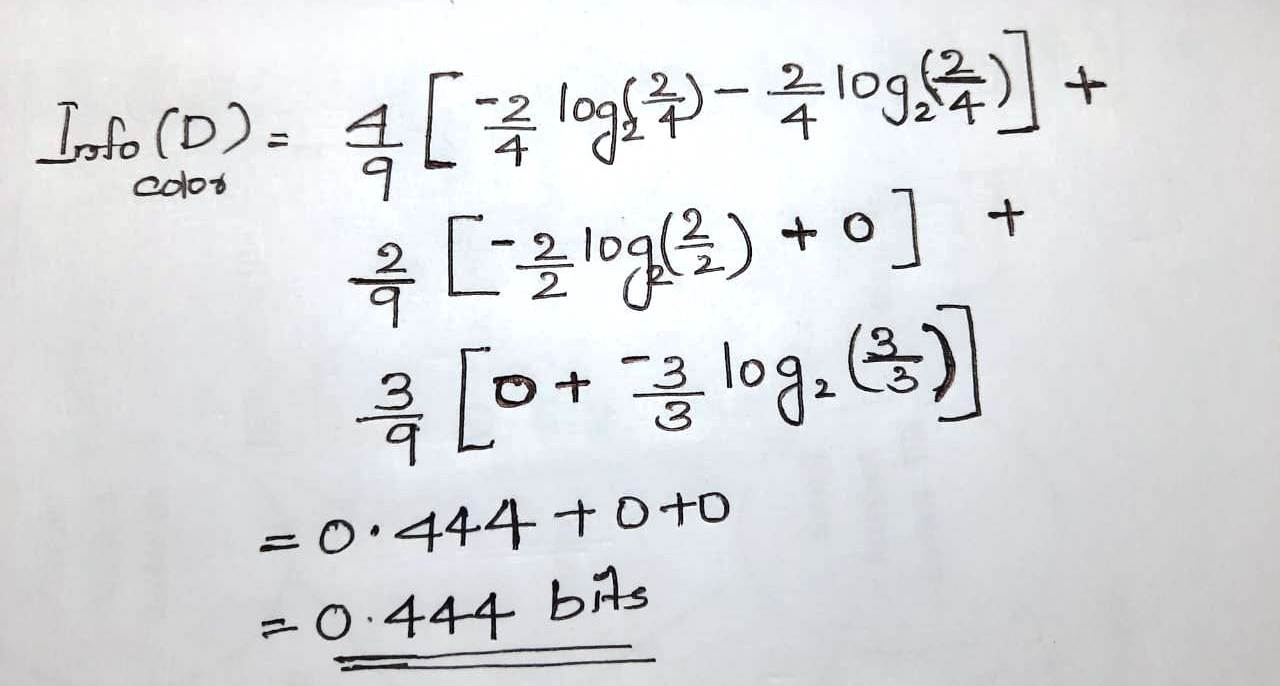 Info (D) = 4/9 [ -2/4 log₂(2/4) - 2/4 log₂(2/4) ] +
color
2/9 [ -2/2 log₂(2/2) + 0 ] +
3/9 [ 0 + -3/3 log₂ (3/3) ]
= 0.444 + 0 + 0
= 0.444 bits